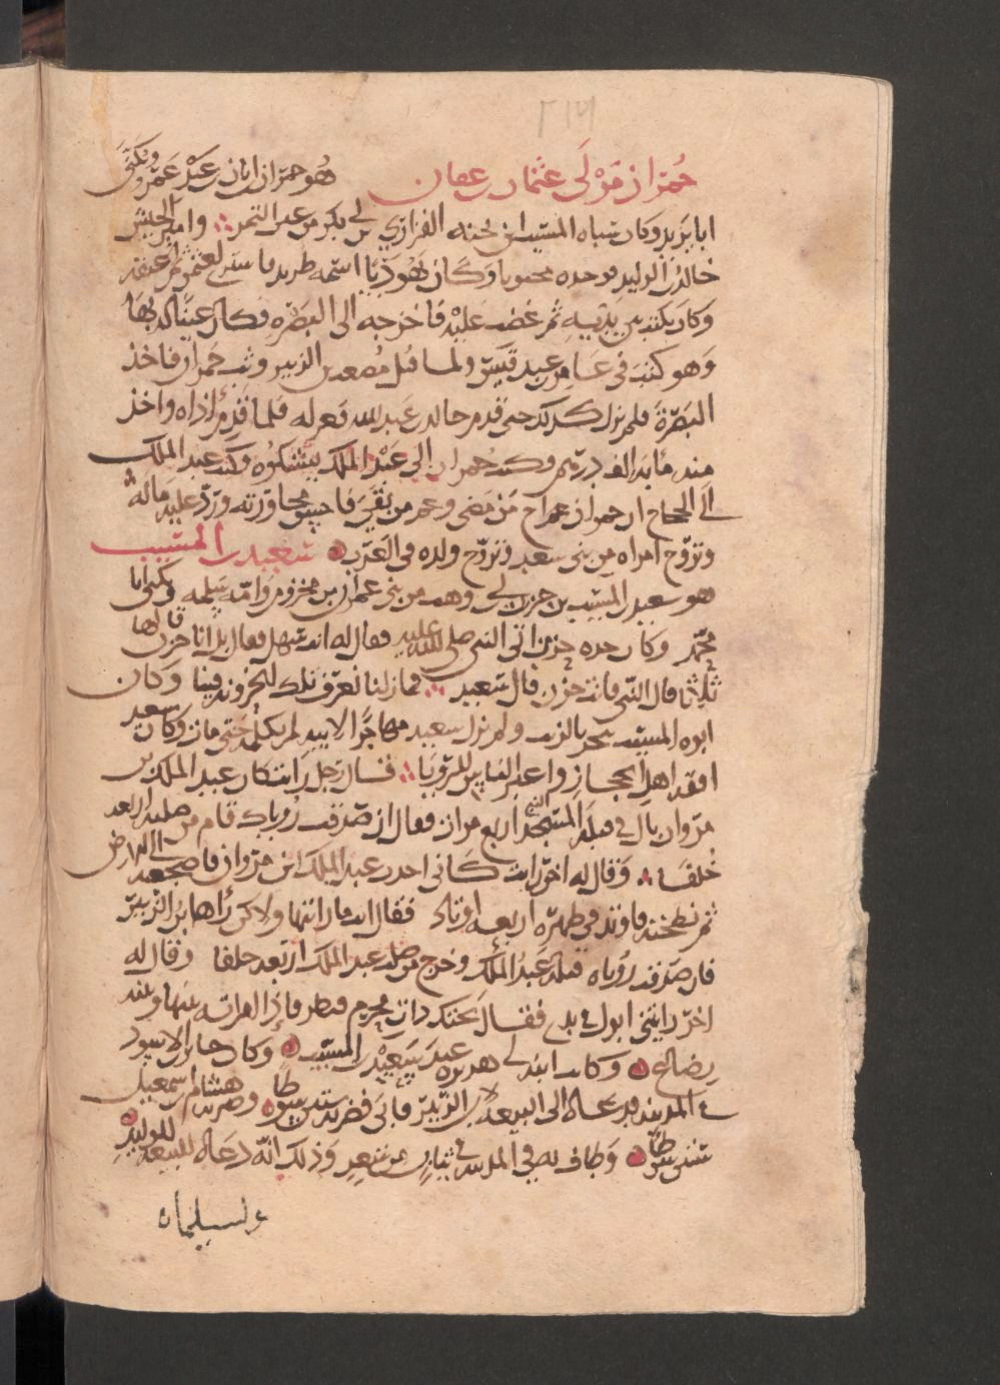 حُمران مَولَى عثمان بن عفان هُو حمران ابان بن عبد عَمرو ويُكنَّى
ابا يزيد وكان سباه المسيب ابن نجبه الفزاري من عين التمر وامير الجيش
خالد بن الوليد فوجده مختونا وكان يَهُوديًّا اسمه طريد فاشترى لعثمن ثم اعتقه
وكان يكتب بين يديه ثم غضب عليْه فاخرجه الى البَصْره فكان عينا له بها
وهو كتب في عَامر بن عبد قيس ولما قتل مُصعب بن الزبير وثب حمران فاخذ
البَصْرة فلم يزل كذلك حتى قدم خالد بن عبد الله فعزله فلما قدم اذاه واخذ
منه مايه الف درهم وكتب حُمران الى عَبْد الملك يَشْكوُه وكتب عَبد الملك
الَى الحجاج ان حمران اخ مَنْ مَضى وعم من بَقَي فاحسن مجاورته ورُدّ عليه ماله
وتزوّج امراه مِن بنى سعد وتزوّج ولده في العَرَب سَعيد بن المسَيب
هو سعيد بن المسَيّب بن حزن وهم من بنى عمران بن مخزوم وامّه سَلمه ويكنى ابا
محمّد وكان جده حزن اتى النبي صلى الله عليه فقال له انت سَهل فقال بل انا حزن قالها
ثلثا قال النبي فانت حزن قال سَعيد فما زلنا نعرّف تلك الحُزونه فينا وكان
ابوه المسَيّب يتجر بالزيت ولم يزل سعيد مهاجرًا لابيه لم يكلمه حَتى مات وكان سعيد
افقه اهل الحجاز واعبر الناس للرؤيا قال له رَجُل رايت كان عبد الملك بن
مرْوان بال في قبله المسجد اربع مرات فقال ان صَدقت رُوياك قام من صلبه اربعه
خُلفا وقال له اخر رايت كاني اخذت عبد الملك ابن مرْوان فاضجعته الى الارض
ثم بطحته فاوتدت في ظهره اربعه اوتاد فقال انت ما رايتها ولاكن رَاها ابن الزبير
فان صَدقت رُوياه قتله عَبدُ الملك وخرج من صلب عبد الملك اربعه خلفا وقال له
اخر رايتنى ابول في يدي فقال تحتك ذات محرم فنظر فاذا امراته بينها وبينه
رضاع وكانت ابنه ابي هريره عند سَعيْد بن المسيب وكان جابر بن الاسود
على المدينه فدعاه الى البيعه لابن الزّبير فابى فضربه ستين سوطا وضربه هشام بن اسمعيل
ستين سوطا وطاف به في المدينه في ثياب من شعر وَذلك انّه دَعاه للبيعه للوليد
وسليمان